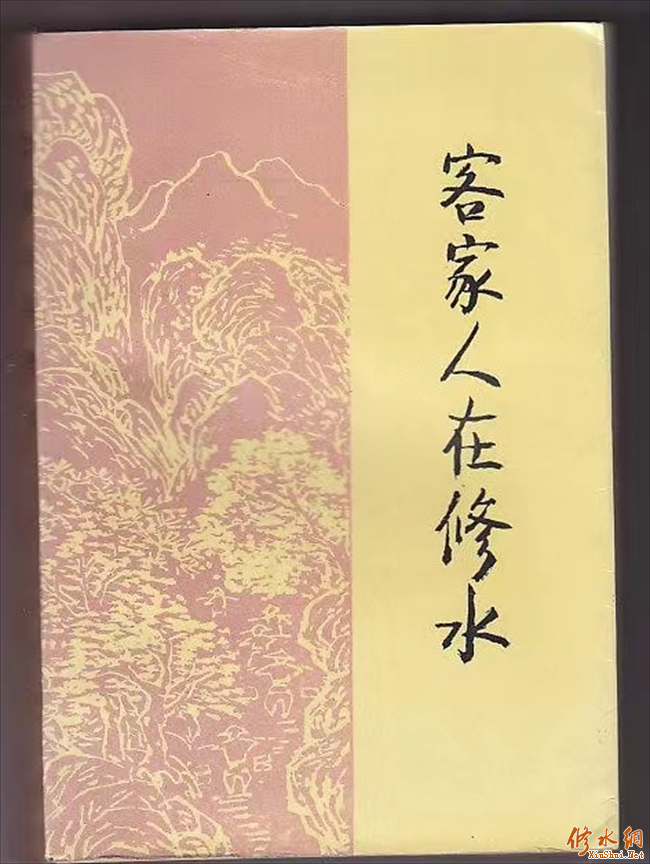 客家人在修水
修水網
XiuShui.Net